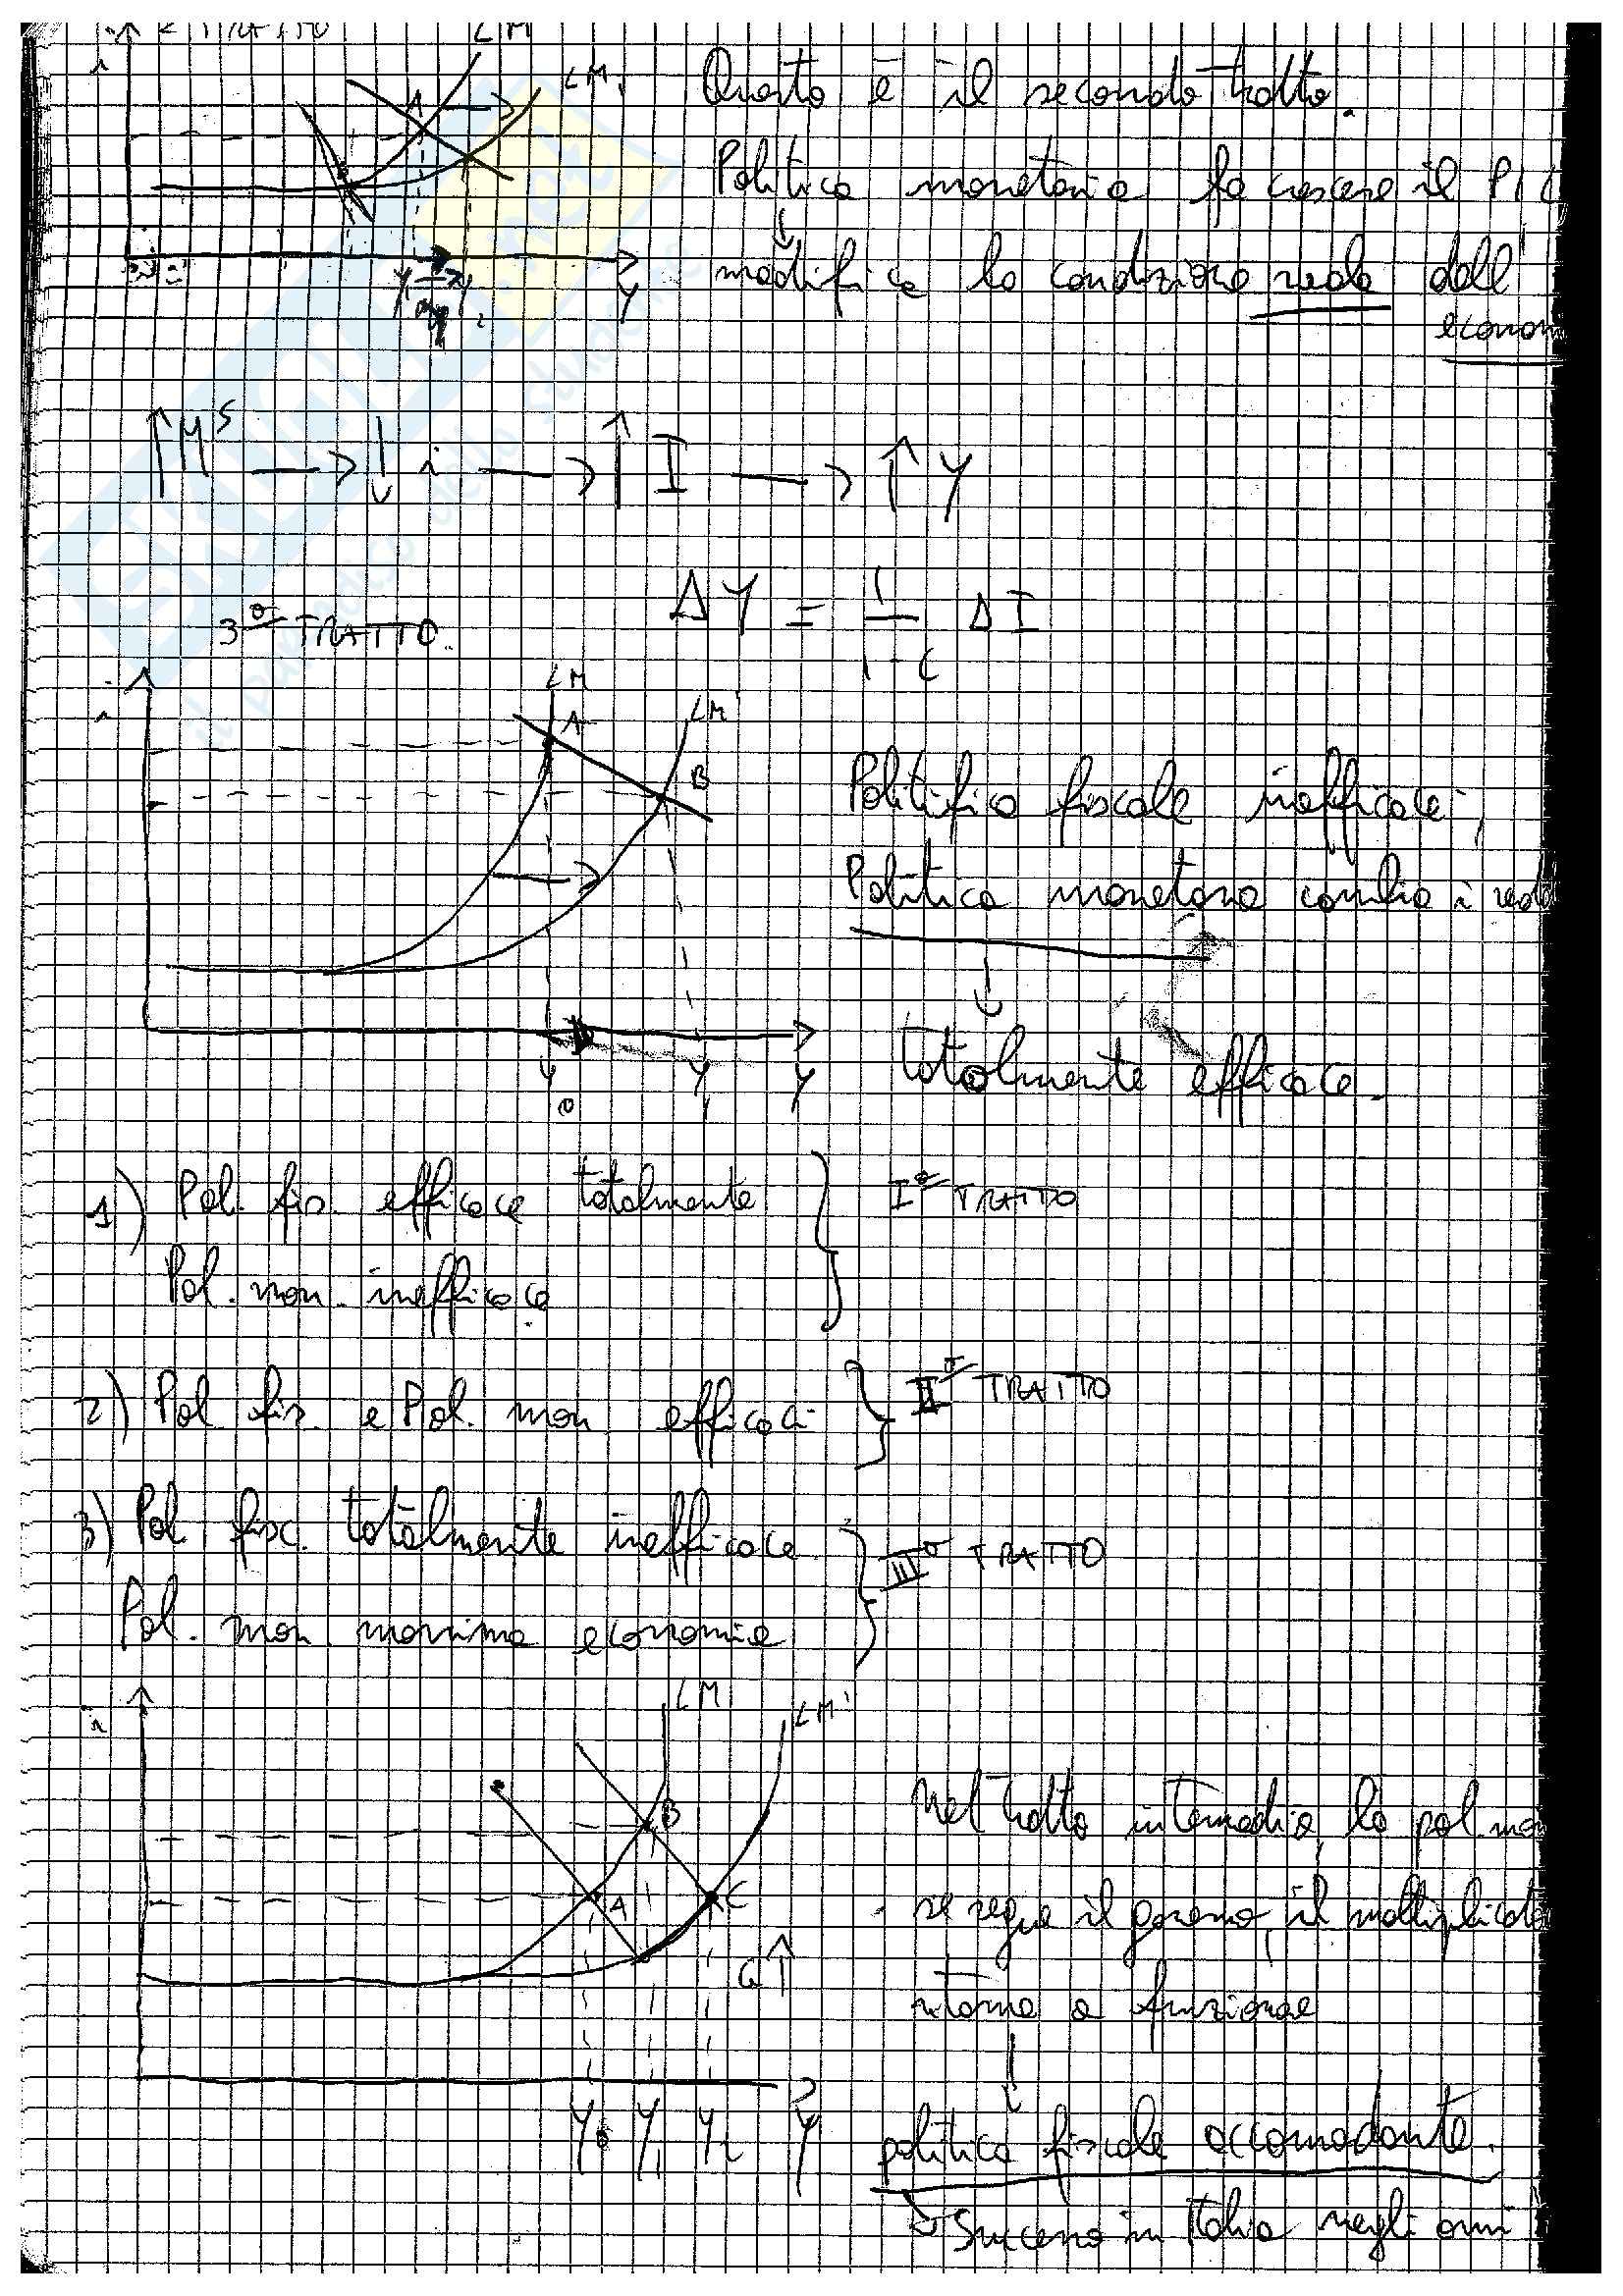 2° TRATTO
i
LM
LM₁
A
Y₁
Y₂
Y
Questo è il secondo tratto.
Politica monetaria fa crescere il PI
modifica la condizione reale dell'
econom
↑ M^S → ↓ i → ↑ I → ↑ Y
ΔY = 1/1-c ΔI
3° TRATTO.
i
LM
LM'
A
B
Y₀
Y₁
Y
Politifica fiscale inefficace;
Politica monetaria cambia i
↓
totalmente efficace.
1) Pol. fis. efficace totalmente
Pol. mon. inefficace
I° TRATTO
2) Pol fis. e Pol. mon efficaci
II° TRATTO
3) Pol fisc. totalmente inefficace
Pol. mon. massima economia
III° TRATTO
i
LM
LM'
B
A
C
G↑
Y₀ Y₁ Y₂ Y
Nel tratto intermedio, la pol. mon
se segue il governo, il moltiplicat
ritorna a funzionae
↓
politica fiscale accomodante.
↳ Successo in Italia negli anni